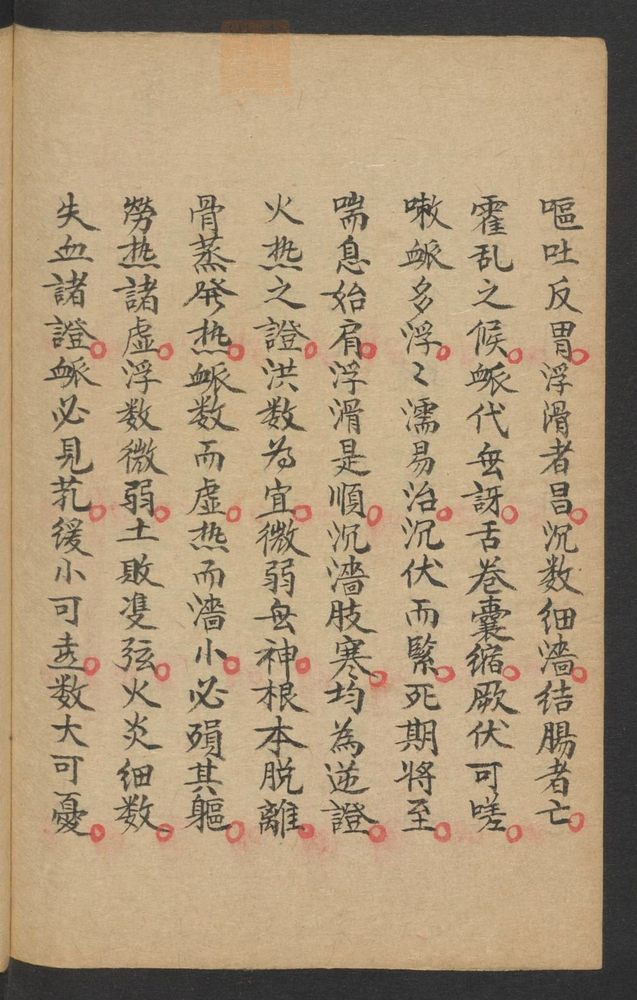 嘔吐反胃。浮滑者昌。沉数細濇。结腸者亡。
霍乱之候。脈代無訝。舌卷囊缩。厥伏可嗟。
嗽脈多浮。〻濡易治。沉伏而緊。死期将至。
喘息始肩。浮滑是順。沉濇肢寒。均為逆證。
火热之證。洪数為宜。微弱無神。根本脱離。
骨蒸発热。脈数而虚。热而濇小。必殞其軀。
勞热諸虚。浮数微弱。土敗雙弦。火炎细数。
失血諸證。脈必見芤。緩小可。数大可憂。